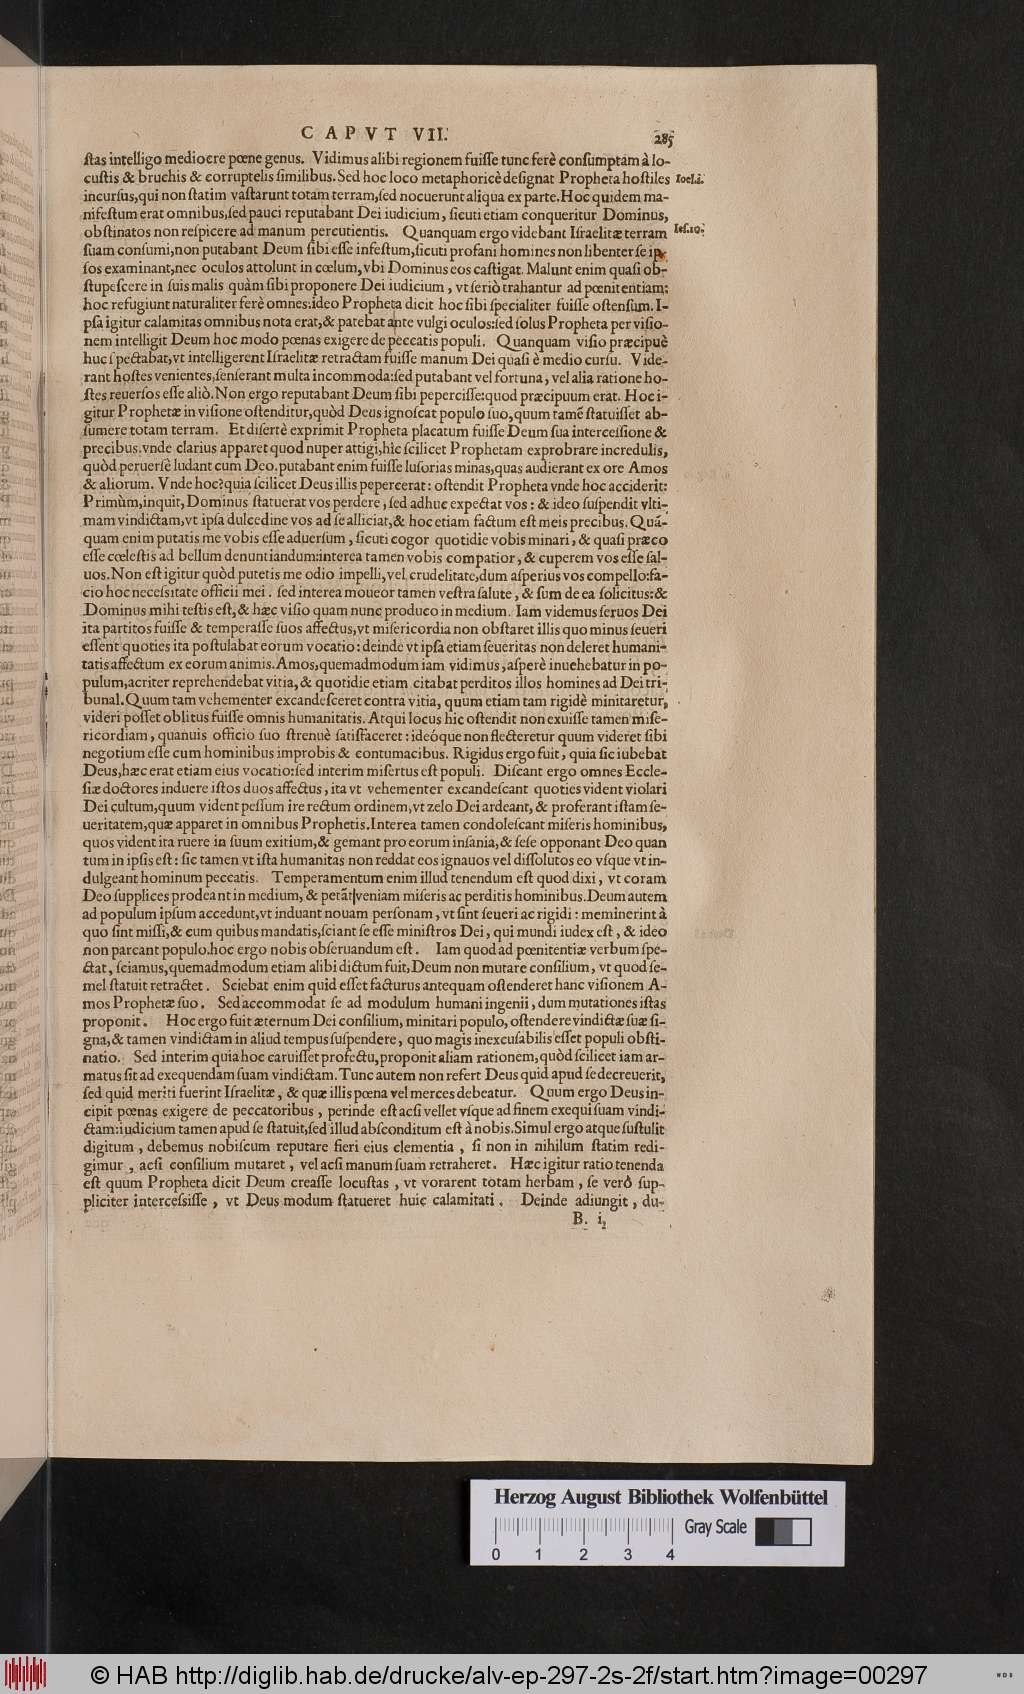 CAPVT VII. 285
ſtas intelligo mediocre pœnę genus. Vidimus alibi regionem fuiſſe tunc ferè conſumptam à lo-
cuſtis & bruchis & corruptelis ſimilibus. Sed hoc loco metaphoricè deſignat Propheta hoſtiles Ioel.1.
incurſus,qui non ſtatim vaſtarunt totam terram,ſed nocuerunt aliqua ex parte.Hoc quidem ma-
nifeſtum erat omnibus,ſed pauci reputabant Dei iudicium, ſicuti etiam conqueritur Dominus,
obſtinatos non reſpicere ad manum percutientis. Quanquam ergo videbant Iſraelitæ terram Ieſ.10.
ſuam conſumi,non putabant Deum ſibi eſſe infeſtum,ſicuti profani homines non libenter ſe ip-
ſos examinant,nec oculos attolunt in cœlum,vbi Dominus eos caſtigat. Malunt enim quaſi ob-
ſtupeſcere in ſuis malis quàm ſibi proponere Dei iudicium, vt ſeriò trahantur ad pœnitentiam:
hoc refugiunt naturaliter ferè omnes:ideo Propheta dicit hoc ſibi ſpecialiter fuiſſe oſtenſum. I-
pſa igitur calamitas omnibus nota erat,& patebat ante vulgi oculos:ſed ſolus Propheta per viſio-
nem intelligit Deum hoc modo pœnas exigere de peccatis populi. Quanquam viſio præcipuè
huc ſpectabat,vt intelligerent Iſraelitæ retractam fuiſſe manum Dei quaſi è medio curſu. Vide-
rant hoſtes venientes,ſenſerant multa incommoda:ſed putabant vel fortuna, vel alia ratione ho-
ſtes reuerſos eſſe aliò.Non ergo reputabant Deum ſibi peperciſſe:quod præcipuum erat. Hoc i-
gitur Prophetæ in viſione oſtenditur,quòd Deus ignoſcat populo ſuo,quum tamẽ ſtatuiſſet ab-
ſumere totam terram. Et diſertè exprimit Propheta placatum fuiſſe Deum ſua interceſſione &
precibus.vnde clarius apparet quod nuper attigi,hîc ſcilicet Prophetam exprobrare incredulis,
quòd peruerſè ludant cum Deo.putabant enim fuiſſe luſorias minas,quas audierant ex ore Amos
& aliorum. Vnde hoc?quia ſcilicet Deus illis pepercerat: oſtendit Propheta vnde hoc acciderit:
Primùm,inquit,Dominus ſtatuerat vos perdere, ſed adhuc expectat vos: & ideo ſuſpendit vlti-
mam vindictam,vt ipſa dulcedine vos ad ſe alliciat,& hoc etiam factum eſt meis precibus.Quã-
quam enim putatis me vobis eſſe aduerſum, ſicuti cogor quotidie vobis minari, & quaſi præco
eſſe cœleſtis ad bellum denuntiandum:interea tamen vobis compatior, & cuperem vos eſſe ſal-
uos.Non eſt igitur quòd putetis me odio impelli,vel crudelitate,dum aſperius vos compello:fa-
cio hoc neceſsitate officii mei. ſed interea moueor tamen veſtra ſalute, & ſum de ea ſolicitus:&
Dominus mihi teſtis eſt,& hæc viſio quam nunc produco in medium. Iam videmus ſeruos Dei
ita partitos fuiſſe & temperaſſe ſuos affectus,vt miſericordia non obſtaret illis quo minus ſeueri
eſſent quoties ita poſtulabat eorum vocatio: deinde vt ipſa etiam ſeueritas non deleret humani-
tatis affectum ex eorum animis.Amos,quemadmodum iam vidimus,aſperè inuehebatur in po-
pulum,acriter reprehendebat vitia,& quotidie etiam citabat perditos illos homines ad Dei tri-
bunal.Quum tam vehementer excandeſceret contra vitia, quum etiam tam rigidè minitaretur,
videri poſſet oblitus fuiſſe omnis humanitatis. Atqui locus hic oſtendit non exuiſſe tamen miſe-
ricordiam, quanuis officio ſuo ſtrenuè ſatiſfaceret: ideóque non flecteretur quum videret ſibi
negotium eſſe cum hominibus improbis & contumacibus. Rigidus ergo fuit, quia ſic iubebat
Deus,hæc erat etiam eius vocatio:ſed interim miſertus eſt populi. Diſcant ergo omnes Eccle-
ſiæ doctores induere iſtos duos affectus, ita vt vehementer excandeſcant quoties vident violari
Dei cultum,quum vident peſſum ire rectum ordinem,vt zelo Dei ardeant, & proferant iſtam ſe-
ueritatem,quæ apparet in omnibus Prophetis.Interea tamen condoleſcant miſeris hominibus,
quos vident ita ruere in ſuum exitium,& gemant pro eorum inſania,& ſeſe opponant Deo quan
tum in ipſis eſt: ſic tamen vt iſta humanitas non reddat eos ignauos vel diſſolutos eo vſque vt in-
dulgeant hominum peccatis. Temperamentum enim illud tenendum eſt quod dixi, vt coram
Deo ſupplices prodeant in medium, & petãt veniam miſeris ac perditis hominibus.Deum autem
ad populum ipſum accedunt,vt induant nouam perſonam, vt ſint ſeueri ac rigidi: meminerint à
quo ſint miſſi,& cum quibus mandatis,ſciant ſe eſſe miniſtros Dei, qui mundi iudex eſt, & ideo
non parcant populo.hoc ergo nobis obſeruandum eſt. Iam quod ad pœnitentiæ verbum ſpe-
ctat, ſciamus,quemadmodum etiam alibi dictum fuit,Deum non mutare conſilium, vt quod ſe-
mel ſtatuit retractet. Sciebat enim quid eſſet facturus antequam oſtenderet hanc viſionem A-
mos Prophetæ ſuo. Sed accommodat ſe ad modulum humani ingenii, dum mutationes iſtas
proponit. Hoc ergo fuit æternum Dei conſilium, minitari populo, oſtendere vindictæ ſuæ ſi-
gna,& tamen vindictam in aliud tempus ſuſpendere, quo magis inexcuſabilis eſſet populi obſti-
natio. Sed interim quia hoc caruiſſet profectu,proponit aliam rationem,quòd ſcilicet iam ar-
matus ſit ad exequendam ſuam vindictam.Tunc autem non refert Deus quid apud ſe decreuerit,
ſed quid meriti fuerint Iſraelitæ, & quæ illis pœna vel merces debeatur. Quum ergo Deus in-
cipit pœnas exigere de peccatoribus, perinde eſt acſi vellet vſque ad finem exequi ſuam vindi-
ctam:iudicium tamen apud ſe ſtatuit,ſed illud abſconditum eſt à nobis.Simul ergo atque ſuſtulit
digitum, debemus nobiſcum reputare fieri eius clementia, ſi non in nihilum ſtatim redi-
gimur, acſi conſilium mutaret, vel acſi manum ſuam retraheret. Hæc igitur ratio tenenda
eſt quum Propheta dicit Deum creaſſe locuſtas, vt vorarent totam herbam, ſe verò ſup-
pliciter interceſsiſſe, vt Deus modum ſtatueret huic calamitati. Deinde adiungit, du-
B. i2
Herzog August Bibliothek Wolfenbüttel
Gray Scale
0 1 2 3 4
© HAB http://diglib.hab.de/drucke/alv-ep-297-2s-2f/start.htm?image=00297